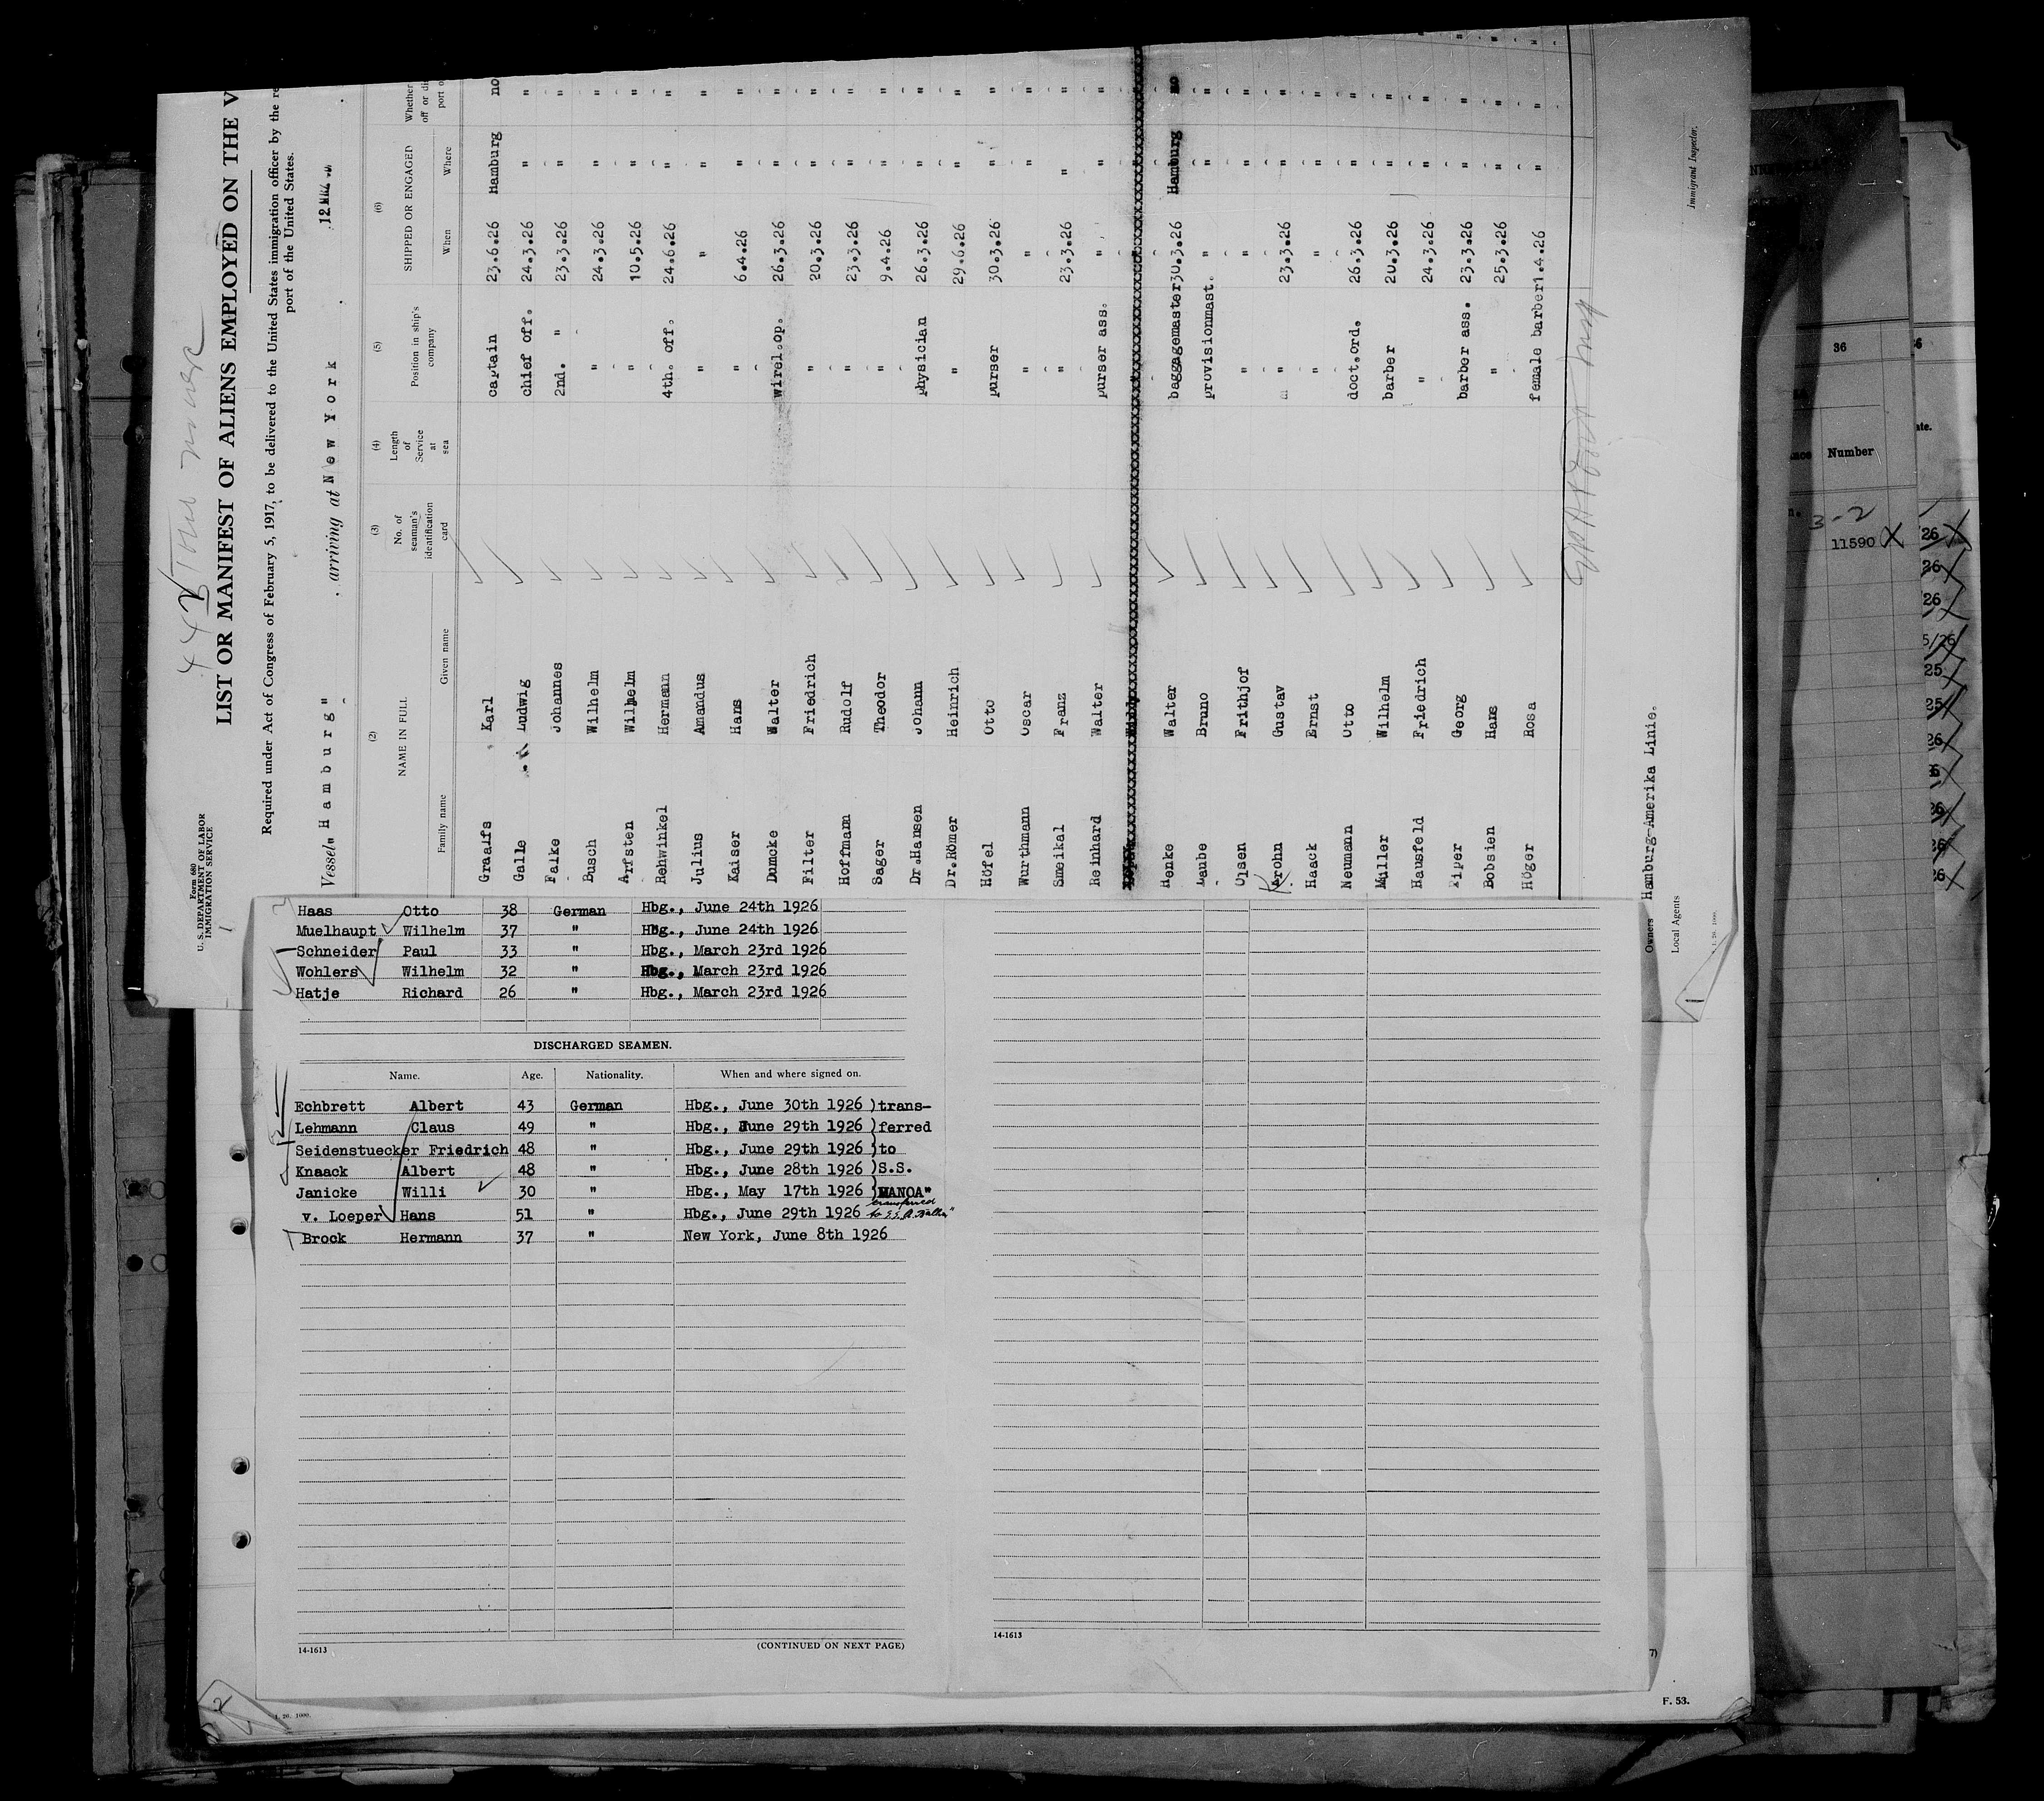 Form 680
U. S. DEPARTMENT OF LABOR
IMMIGRATION SERVICE
LIST OR MANIFEST OF ALIENS EMPLOYED ON THE V
Required under Act of Congress of February 5, 1917, to be delivered to the United States immigration officer by the re
port of the United States.
Vessel "Hamburg" arriving at New York
(2) (3) (4) (5) (6)
NAME IN FULL No. of seaman's identification card Length of Service at sea Position in ship's company SHIPPED OR ENGAGED Whether
Family name Given name When Where
Graalfs Karl captain 23.6.26 Hamburg no
Galle Ludwig chief off. 24.3.26 " "
Falke Johannes 2nd. " 23.3.26 " "
Busch Wilhelm " 24.3.26 " "
Arfsten Wilhelm " 10.5.26 " "
Rehwinkel Hermann 4th. off. 24.6.26 " "
Julius Amandus " " " "
Kaiser Hans " 6.4.26 " "
Dumcke Walter wirel.op. 26.3.26 " "
Filter Friedrich " 20.3.26 " "
Hoffmann Rudolf " 23.3.26 " "
Sager Theodor " 9.4.26 " "
Dr.Hansen Johann physician 26.3.26 " "
Dr.Römer Heinrich " 29.6.26 " "
Höfel Otto purser 30.3.26 " "
Wurthmann Oscar " " " "
Smeikal Franz " 23.3.26 " "
Reinhard Walter purser ass. " " "
Henke Walter baggagemaster 30.3.26 Hamburg no
Laube Bruno provisionmast. " " "
Olsen Frithjof " " " "
Krohn Gustav " 23.3.26 " "
Haack Ernst " " " "
Neumann Otto doct.ord. 26.3.26 " "
Müller Wilhelm barber 20.3.26 " "
Hausfeld Friedrich " 24.3.26 " "
Piper Georg barber ass. 23.3.26 " "
Bobsien Hans " 25.3.26 " "
Höger Rosa female barber 1.4.26 " "
Owners Hamburg-Amerika Linie.
Local Agents
Immigrant Inspector.
Haas Otto 38 German Hbg., June 24th 1926
Muelhaupt Wilhelm 37 " Hbg., June 24th 1926
Schneider Paul 33 " Hbg., March 23rd 1926
Wohlers Wilhelm 32 " Hbg., March 23rd 1926
Hatje Richard 26 " Hbg., March 23rd 1926
DISCHARGED SEAMEN.
Name. Age. Nationality. When and where signed on.
Echbrett Albert 43 German Hbg., June 30th 1926 )trans-
Lehmann Claus 49 " Hbg., June 29th 1926 )ferred
Seidenstuecker Friedrich 48 " Hbg., June 29th 1926 )to
Knaack Albert 48 " Hbg., June 28th 1926 )S.S.
Janicke Willi 30 " Hbg., May 17th 1926 )"MANOA"
v. Loeper Hans 51 " Hbg., June 29th 1926 transferred to S.S. A. Ballin"
Brock Hermann 37 " New York, June 8th 1926
14-1613
(CONTINUED ON NEXT PAGE)
14-1613
F. 53.
2
1
36
Number
3-2
11590 X